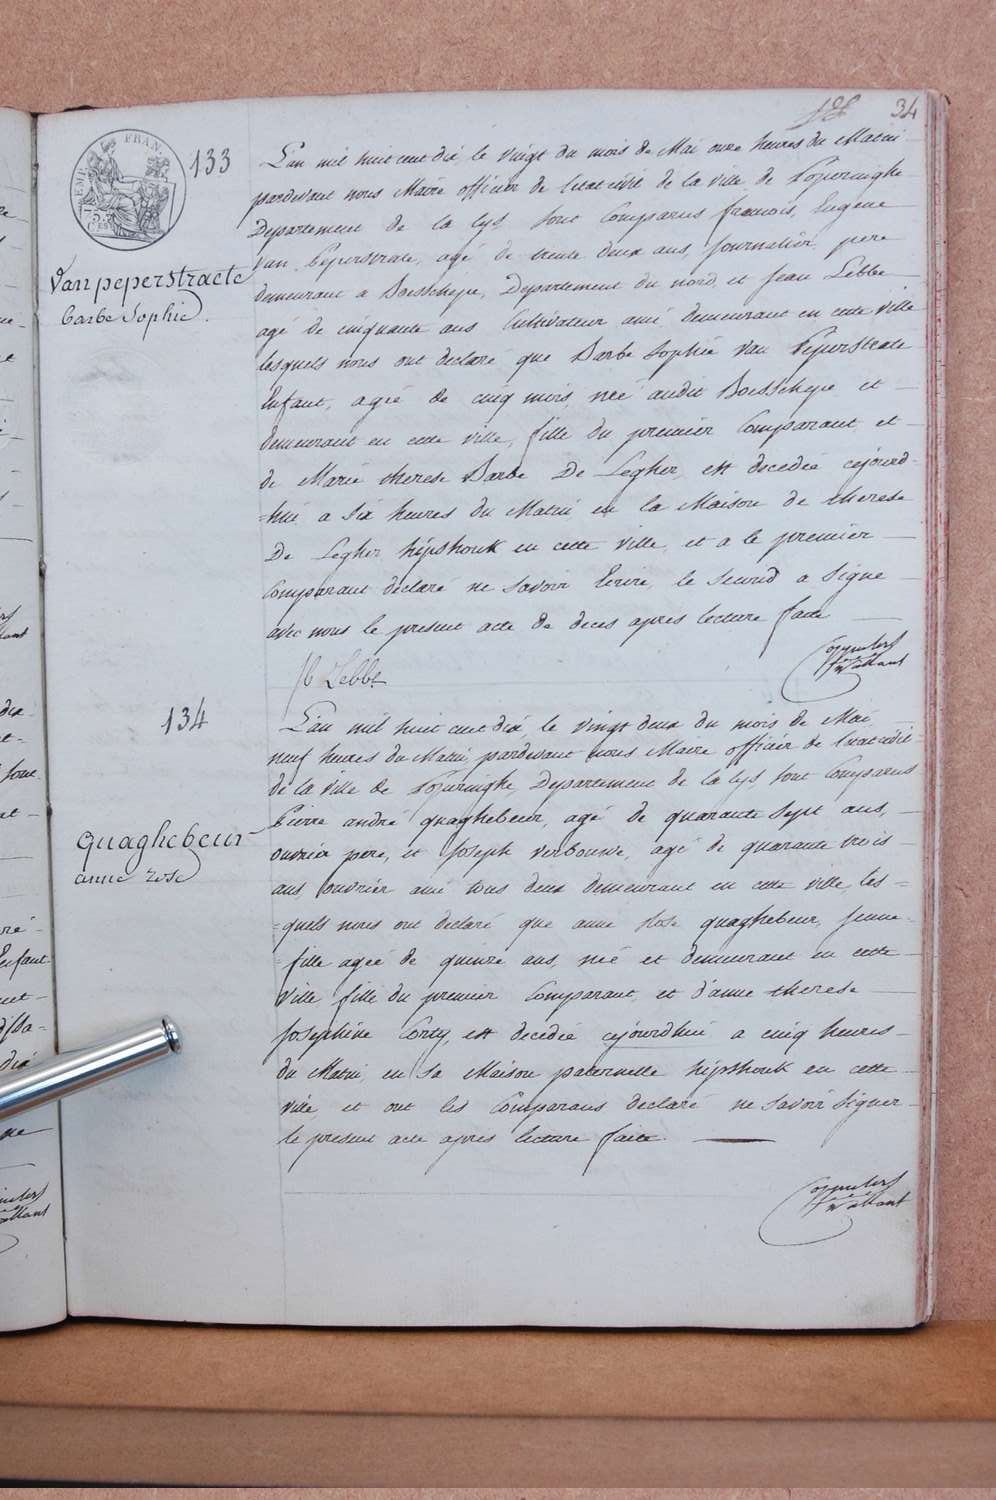 34
EMP. FRAN.
75
133
Van peperstraete
barbe Sophie.
L'an mil huit cent dix le vingt du mois de Mai onze heures du Matin
pardevant nous Maire officier de l'etat civil de la ville de Poperinghe
Departement de la Lys sont Comparus francois Eugene
Van Peperstrate, agé de trente deux ans, Journalier, pere
demeurant a Boesschepe, Departement du nord, et Jean Lebbe
agé de cinquante ans Cultivateur ami, demeurant en cette ville
lesquels nous ont declaré que Barbe Sophie Van Peperstrate
Enfant, agée de cinq mois, née audit Boesschepe et
demeurant en cette ville, fille du premier Comparant et
de Marie therese Barbe De Legher, est decedée cejourd-
=hui a six heures du Matin en la Maison de therese
De Legher hipshouk en cette ville, et a le premier
Comparant declaré ne savoir Ecrire, le second a signe
avec nous le present acte de deces apres lecture faite
Lebbe
134
quaghebeur
anne rose
L'an mil huit cent dix, le vingt deux du mois de Mai
neuf heures du Matin, pardevant nous Maire officier de l'etat civil
de la ville de Poperinghe, Departement de la Lys, sont Comparus
Pierre andré quaghebeur, agé de quarante sept ans,
ouvrier pere, et Joseph Verbouwe, agé de quarante trois
ans, ouvrier ami tous deux demeurant en cette ville, les=
=quels nous ont declaré que anne Rose quaghebeur, Jeune
=fille agée de quinze ans, née et demeurant en cette
Ville fille du premier Comparant, et d'anne therese
Josephine Corty, est decedée cejourdhui a cinq heures
du Matin, en sa Maison paternelle hipshouk en cette
ville et ont les Comparans declaré ne savoir signer
le present acte apres lecture faite.